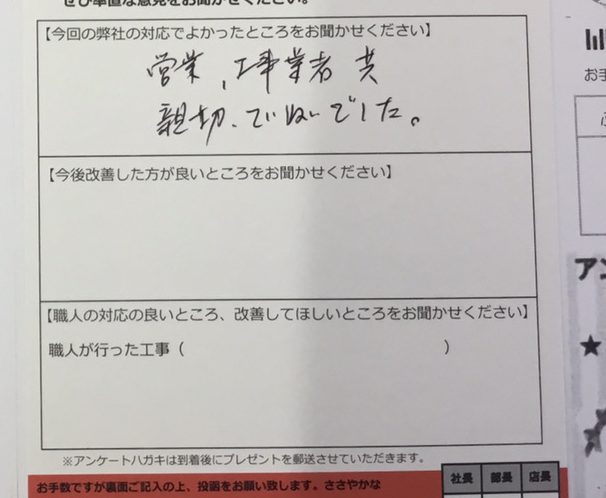 ぜひ率直な意見をお聞かせください。
【今回の弊社の対応でよかったところをお聞かせください】
営業、工事業者 共
親切、ていねいでした。
【今後改善した方が良いところをお聞かせください】
【職人の対応の良いところ、改善してほしいところをお聞かせください】
職人が行った工事（ ）
※アンケートハガキは到着後にプレゼントを郵送させていただきます。
お手数ですが裏面ご記入の上、投函をお願い致します。ささやかな
社長 部長 店長
お手
アン
★